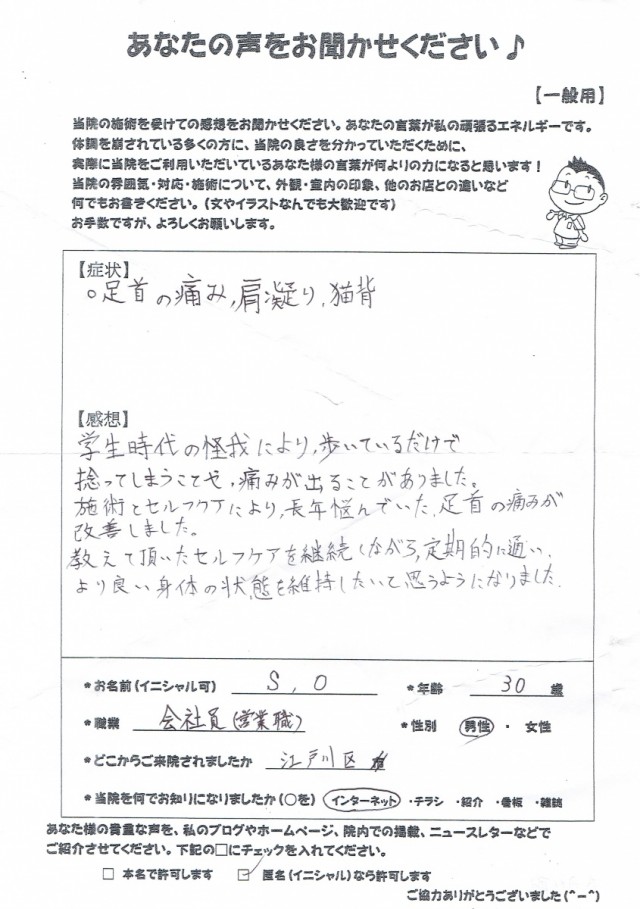 あなたの声をお聞かせください♪
【一般用】
当院の施術を受けての感想をお聞かせください。あなたの言葉が私の頑張るエネルギーです。
体調を崩されている多くの方に、当院の良さを分かっていただくために、
実際に当院をご利用いただいているあなた様の言葉が何よりの力になると思います！
当院の雰囲気・対応・施術について、外観・室内の印象、他のお店との違いなど
何でもお書きください。（文やイラストなんでも大歓迎です）
お手数ですが、よろしくお願いします。
【症状】
○足首の痛み,肩凝り,猫背
【感想】
学生時代の怪我により,歩いているだけで
捻ってしまうことや,痛みが出ることがありました。
施術とセルフケアにより,長年悩んでいた,足首の痛みが
改善しました。
教えて頂いたセルフケアを継続しながら,定期的に通い,
より良い身体の状態を維持したいと思うようになりました.
*お名前(イニシャル可) S,O *年齢 30 歳
*職業 会社員(営業職) *性別 男性 ・ 女性
*どこからご来院されましたか 江戸川区
*当院を何でお知りになりましたか(○を) インターネット ・チラシ ・紹介 ・看板 ・雑誌
あなた様の貴重な声を、私のブログやホームページ、院内での掲載、ニュースレターなどで
ご紹介させてください。下記の□にチェックを入れてください。
□ 本名で許可します ☑ 匿名(イニシャル)なら許可します
ご協力ありがとうございました(^-^)